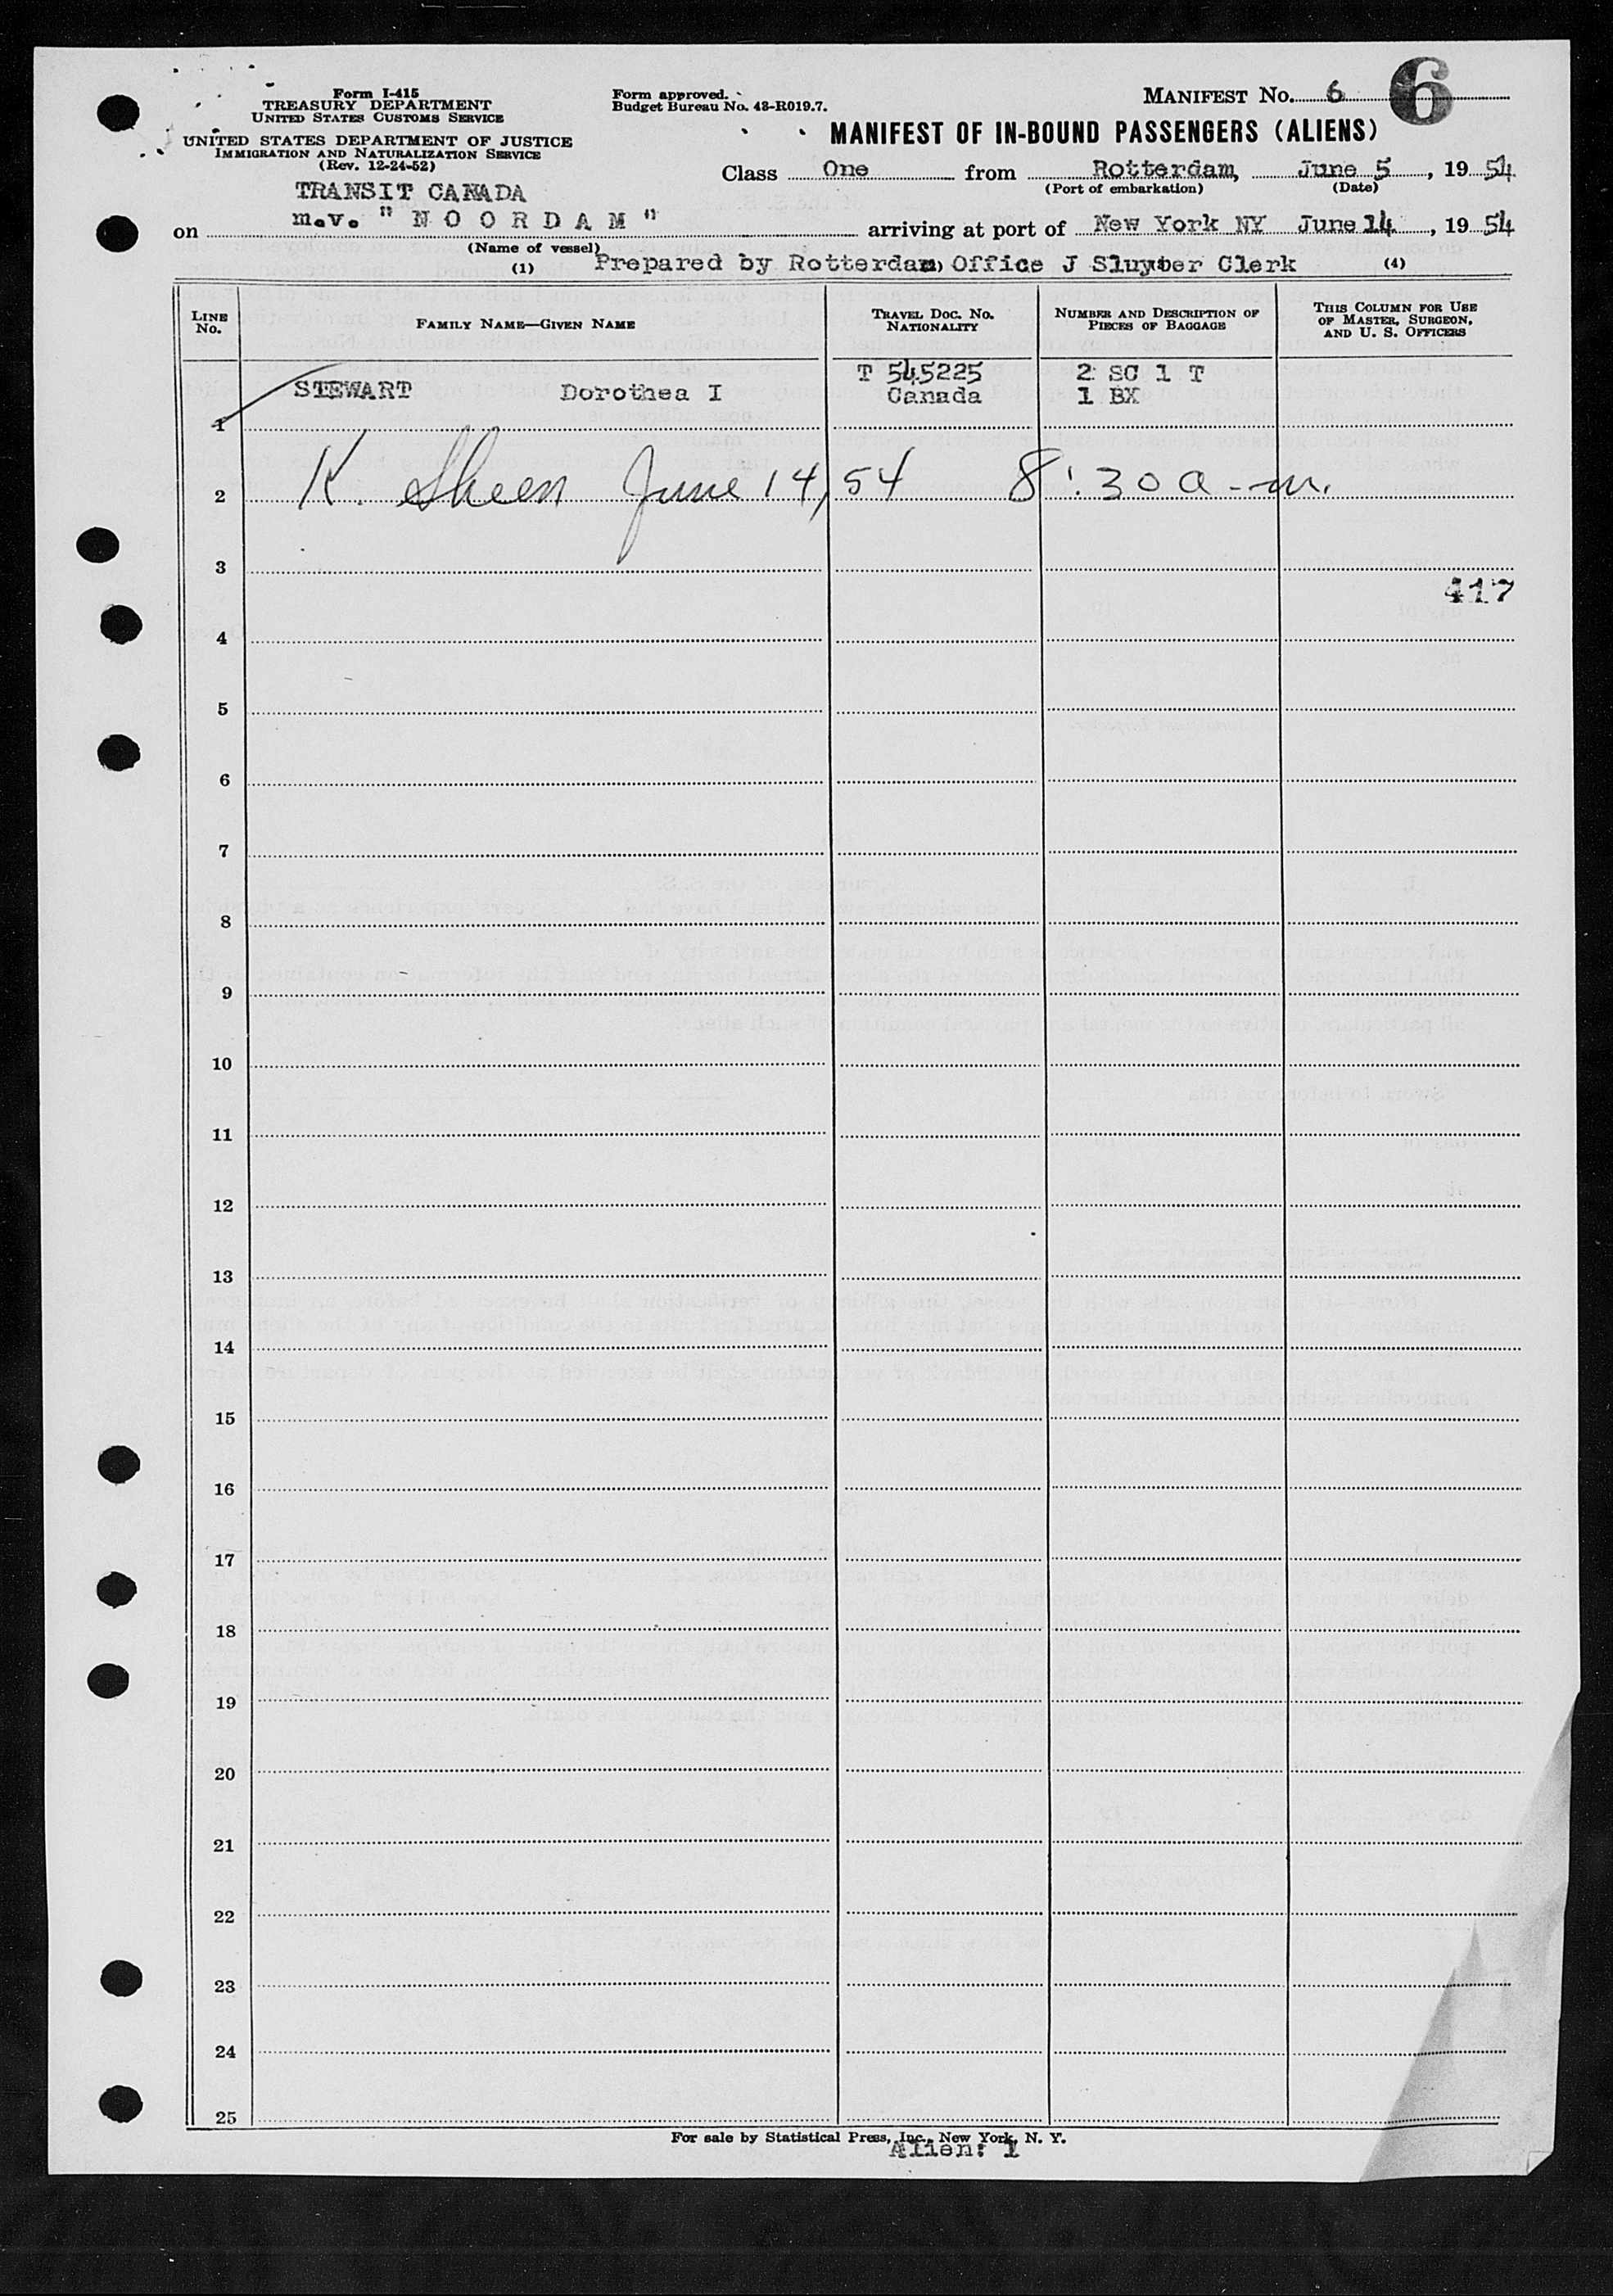 Form I-415
TREASURY DEPARTMENT
UNITED STATES CUSTOMS SERVICE
UNITED STATES DEPARTMENT OF JUSTICE
IMMIGRATION AND NATURALIZATION SERVICE
(Rev. 12-24-52)
Form approved.
Budget Bureau No. 43-R019.7.
MANIFEST No. 6
6
MANIFEST OF IN-BOUND PASSENGERS (ALIENS)
Class One from Rotterdam, June 5, 1954
(Port of embarkation) (Date)
TRANSIT CANADA
on m.v. "NOORDAM" arriving at port of New York NY June 14, 1954
(Name of vessel)
(1) Prepared by Rotterdam Office J Sluyter Clerk (4)
LINE No. FAMILY NAME—GIVEN NAME TRAVEL DOC. No. NATIONALITY NUMBER AND DESCRIPTION OF PIECES OF BAGGAGE THIS COLUMN FOR USE OF MASTER, SURGEON, AND U. S. OFFICERS
1 STEWART Dorothea I T 545225 Canada 2 SC 1 T 1 BX
2 K. Sheen June 14, 54 8:30 a.m.
3
417
4
5
6
7
8
9
10
11
12
13
14
15
16
17
18
19
20
21
22
23
24
25
For sale by Statistical Press, Inc., New York, N. Y.
Alien: 1